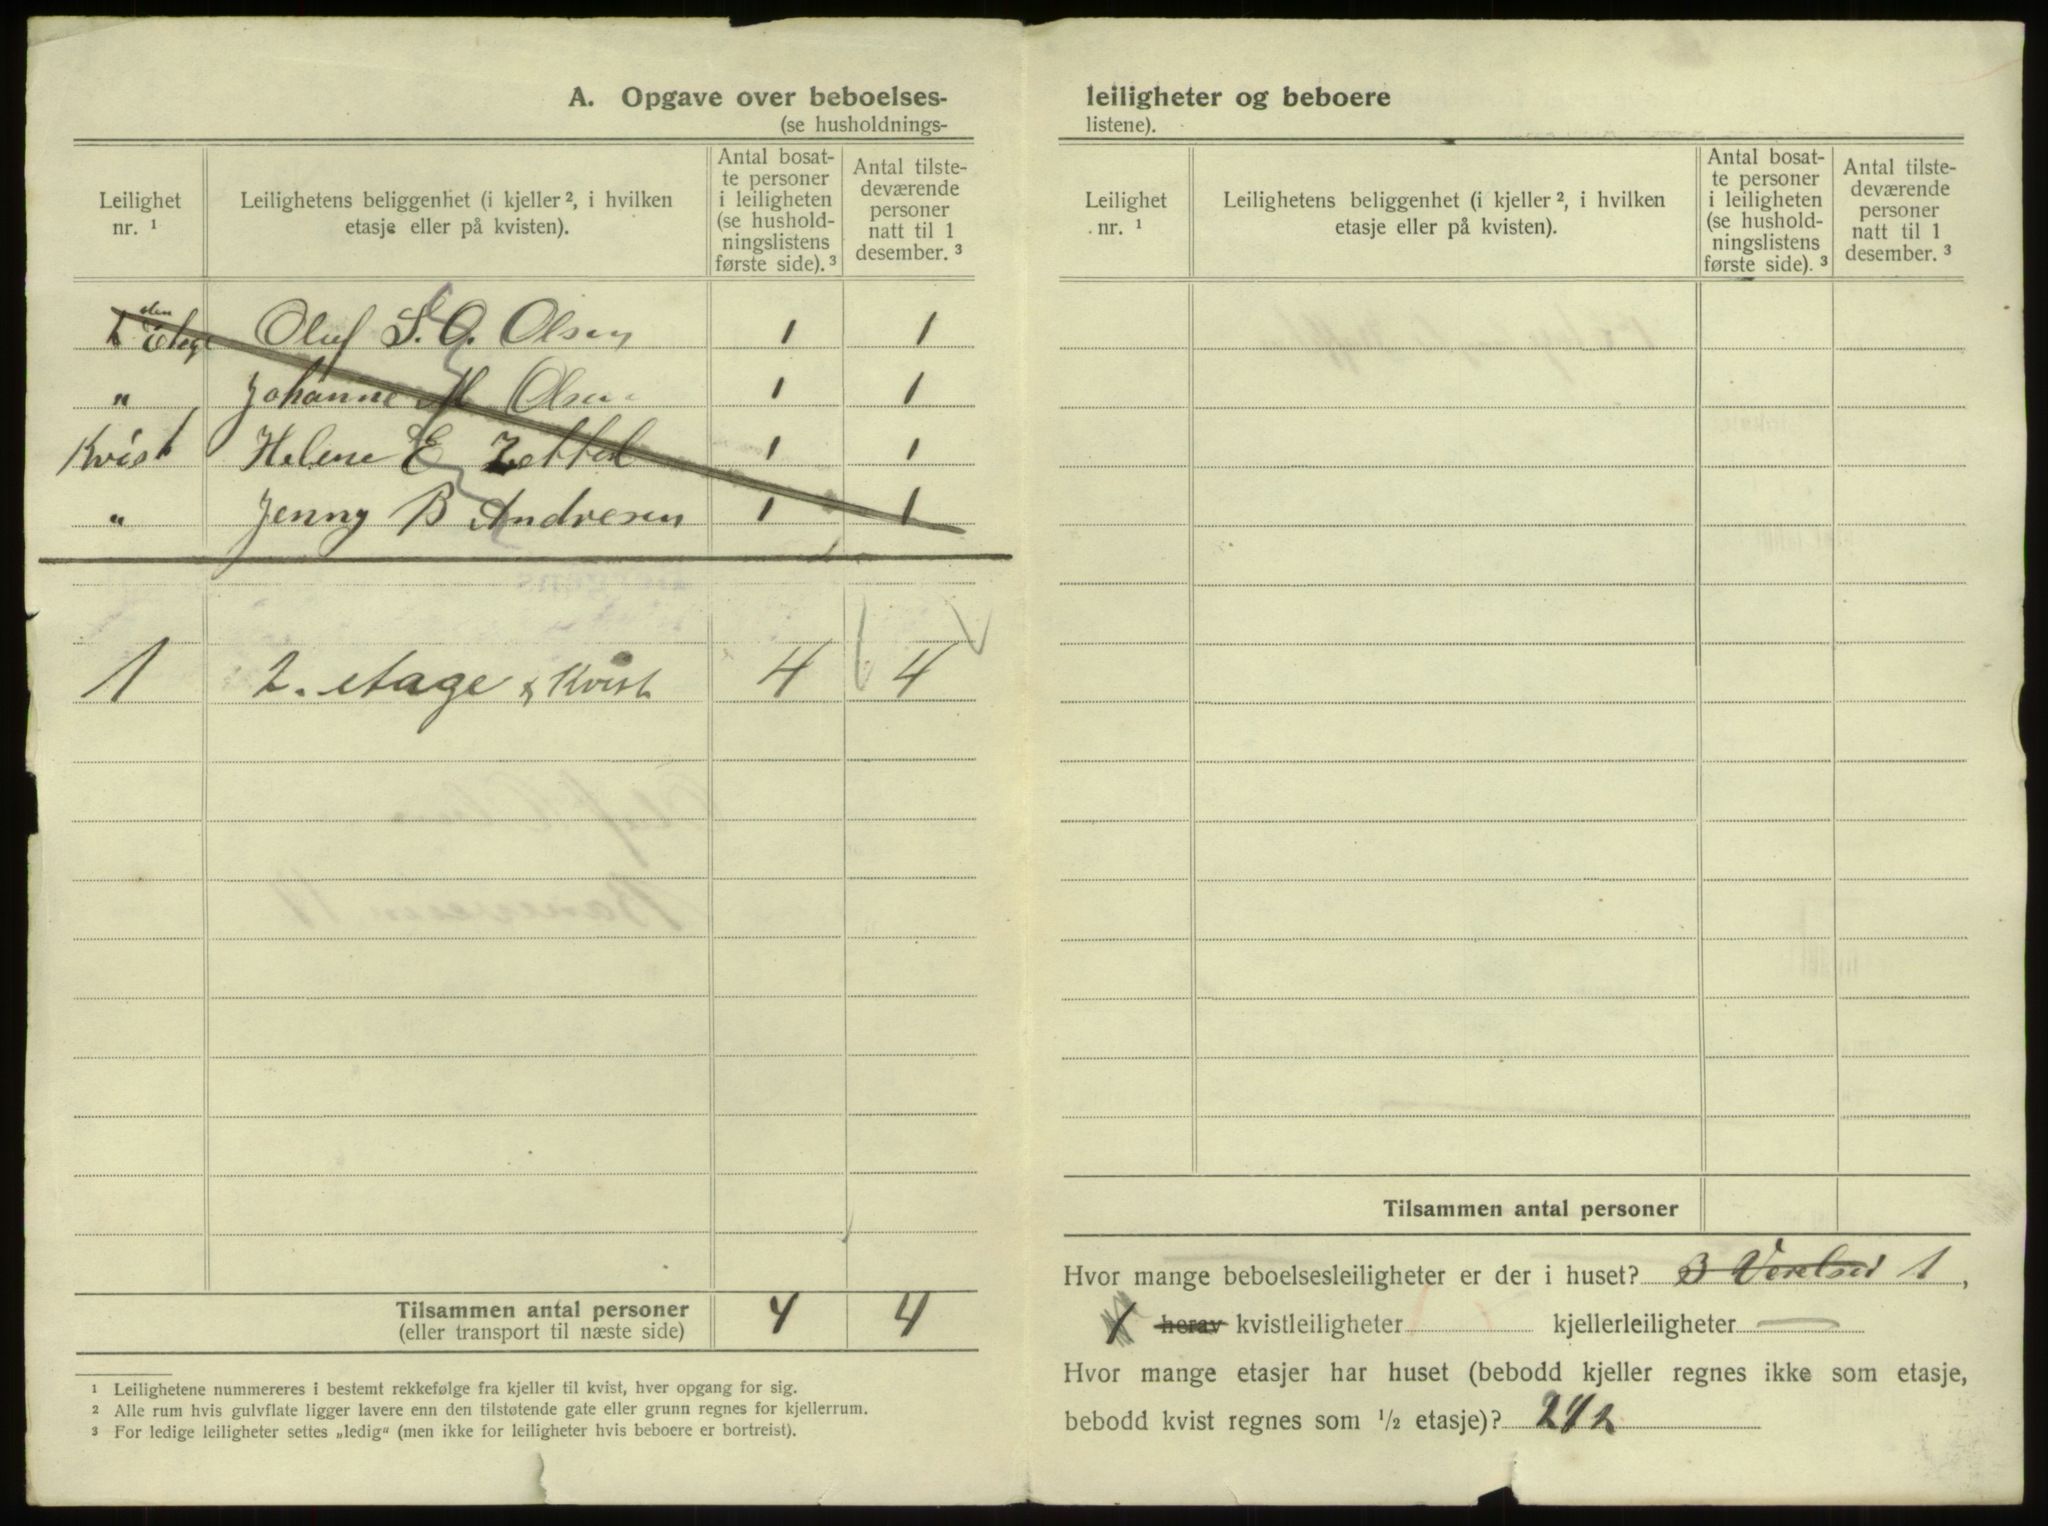 A. Opgave over beboelses-
(se husholdnings-
Leilighet nr. ¹
Leilighetens beliggenhet (i kjeller ², i hvilken etasje eller på kvisten).
Antal bosat-te personer i leiligheten (se hushold-ningslistens første side). ³
Antal tilste-deværende personer natt til 1 desember. ³
den Etage Oluf S. O. Olsen 1 1
" Johanne M Olsen 1 1
Kvist Helene E Zettel 1 1
" Jenny B Andresen 1 1
1 2. etage & Kvist 4 4
Tilsammen antal personer 4 4
(eller transport til næste side)
¹ Leilighetene nummereres i bestemt rekkefølge fra kjeller til kvist, hver opgang for sig.
² Alle rum hvis gulvflate ligger lavere enn den tilstøtende gate eller grunn regnes for kjellerrum.
³ For ledige leiligheter settes „ledig" (men ikke for leiligheter hvis beboere er bortreist).
leiligheter og beboere
listene).
Leilighet nr. ¹
Leilighetens beliggenhet (i kjeller ², i hvilken etasje eller på kvisten).
Antal bosat-te personer i leiligheten (se hushold-ningslistens første side). ³
Antal tilste-deværende personer natt til 1 desember. ³
Tilsammen antal personer
Hvor mange beboelsesleiligheter er der i huset? 3 Værelser 1,
1 herav kvistleiligheter kjellerleiligheter —
Hvor mange etasjer har huset (bebodd kjeller regnes ikke som etasje,
bebodd kvist regnes som ½ etasje)? 2 1/2